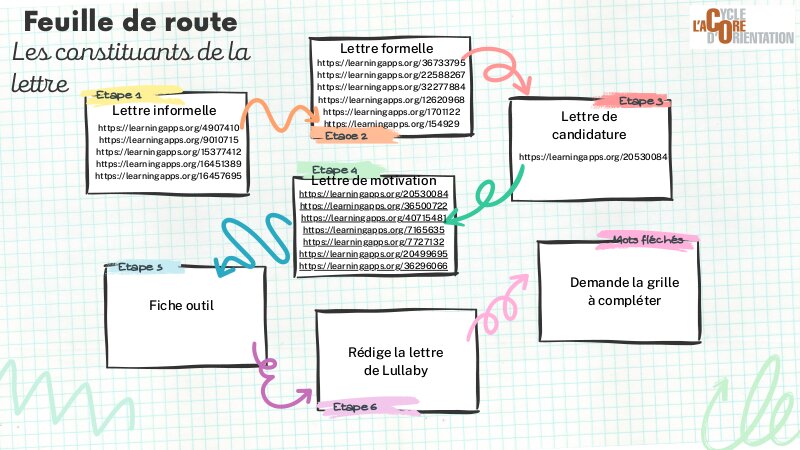 Feuille de route
Les constituants de la
lettre
CYCLE
L'ACORE
D'ORIENTATION
Etape 1
Lettre informelle
https://learningapps.org/4907410
https://learningapps.org/9010715
https://learningapps.org/15377412
https://learningapps.org/16451389
https://learningapps.org/16457695
Lettre formelle
https://learningapps.org/36733795
https://learningapps.org/22588267
https://learningapps.org/32277884
https://learningapps.org/12620968
https://learningapps.org/1701122
https://learningapps.org/154929
Etape 2
Etape 3
Lettre de
candidature
https://learningapps.org/20530084
Etape 4
Lettre de motivation
https://learningapps.org/20530084
https://learningapps.org/36500722
https://learningapps.org/40715481
https://learningapps.org/7165635
https://learningapps.org/7727132
https://learningapps.org/20499695
https://learningapps.org/36296066
Etape 5
Fiche outil
Rédige la lettre
de Lullaby
Etape 6
Mots fléchés
Demande la grille
à compléter